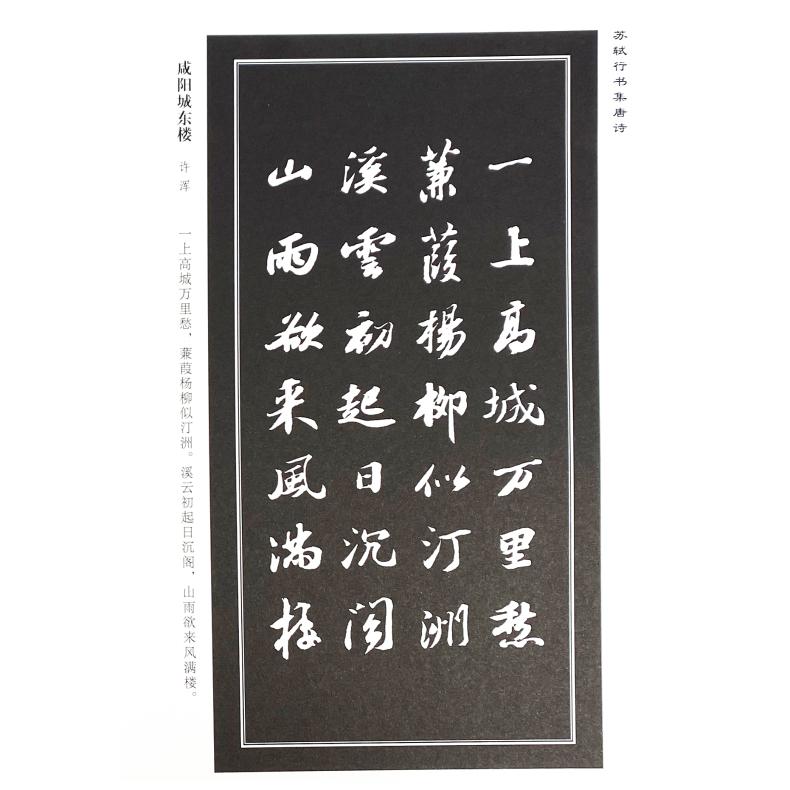 苏轼行书集唐诗
一上高城万里愁
蒹葭楊柳似汀洲
溪雲初起日沉阁
山雨欲来風满楼
咸阳城东楼
许浑
一上高城万里愁，蒹葭杨柳似汀洲。溪云初起日沉阁，山雨欲来风满楼。